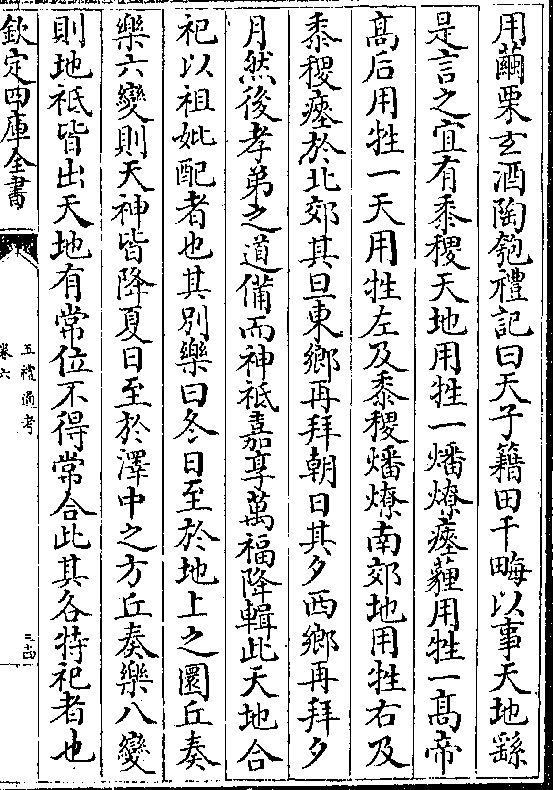 用繭栗玄酒陶匏禮記曰天子藉田千畮以事天地繇
是言之宜有黍稷天地用牲一燔燎瘞薶用牲一髙帝
髙后用牲一天用牲左及黍稷燔燎南郊地用牲右及
黍稷瘞於北郊其旦東鄉再拜朝日其夕西鄉再拜夕
月然後孝弟之道備而神祗嘉享萬福降輯此天地合
祀以祖妣配者也其别樂曰冬日至於地上之圜丘奏
樂六變則天神皆降夏日至於澤中之方丘奏樂八變
則地祗皆出天地有常位不得常合此其各特祀者也
欽定四庫全書
五禮通考
卷六
三十四